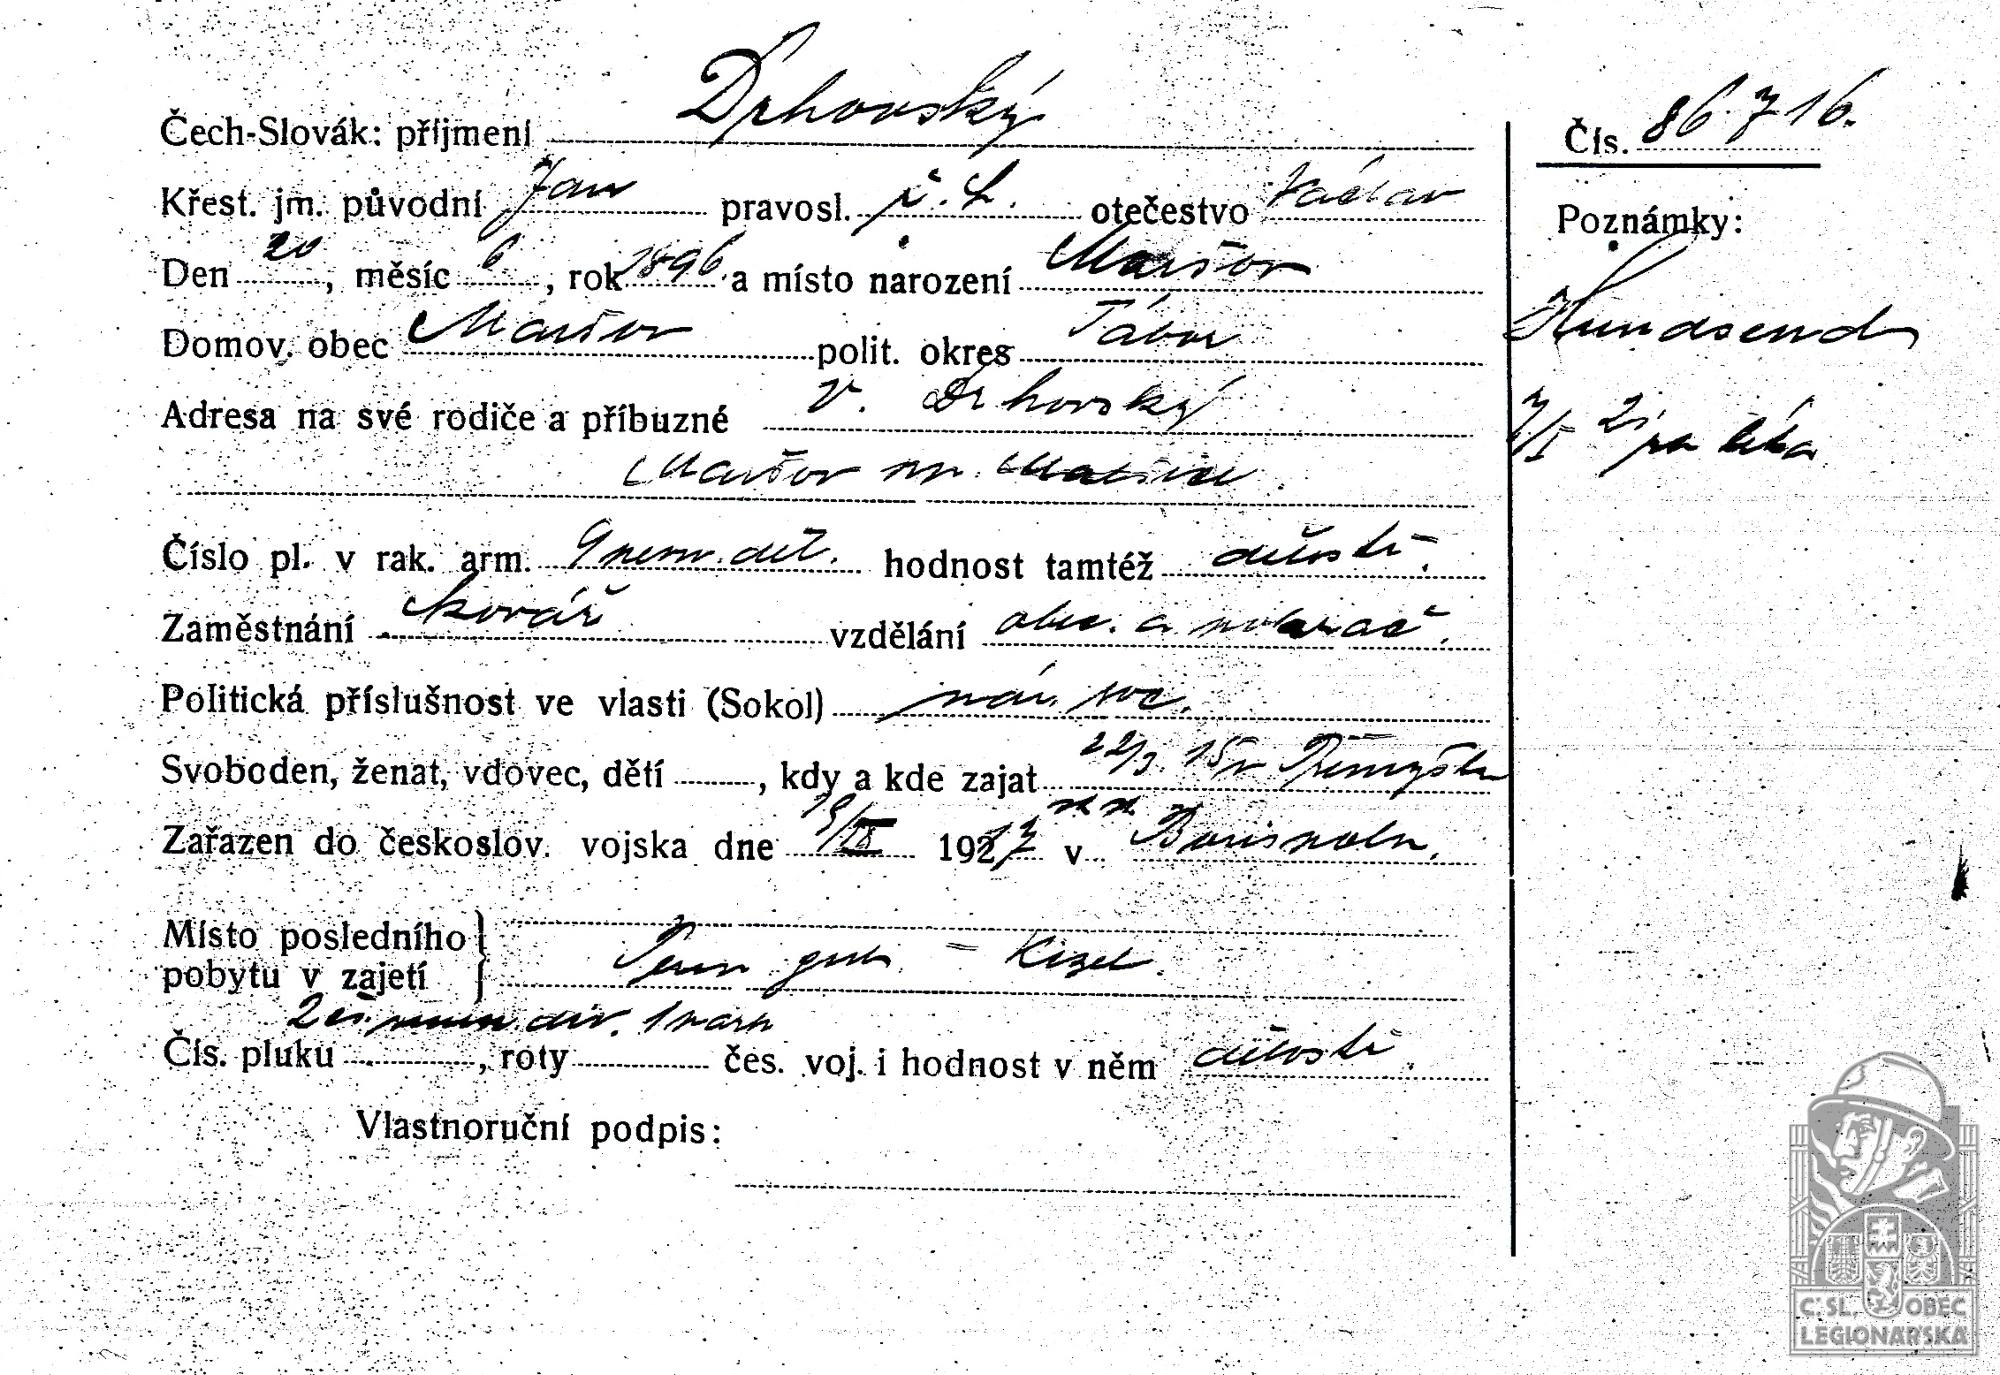 Čech-Slovák: příjmení Drhovský
Čís. 86716.
Křest. jm. původní Jan pravosl. ř. k. otečestvo Václav
Poznámky:
Den 20, měsíc 6, rok 1896. a místo narození Maršov
Domov. obec Maršov polit. okres Tábor
Adresa na své rodiče a příbuzné V. Drhovský
Maršov
Číslo pl. v rak. arm. 9 děl. hodnost tamtéž
Zaměstnání kovář vzdělání obec. a pokrač.
Politická příslušnost ve vlasti (Sokol) nár. soc.
Svoboden, ženat, vdovec, dětí, kdy a kde zajat 22/3. 15 v Přemyšlu
Zařazen do českoslov. vojska dne 1917 v Borispolu.
Místo posledního
pobytu v zajetí Perm gub. – Kizel.
div. 1 park
Čís. pluku, roty čes. voj. i hodnost v něm
Vlastnoruční podpis:
Č. SL. OBEC
LEGIONÁŘSKÁ